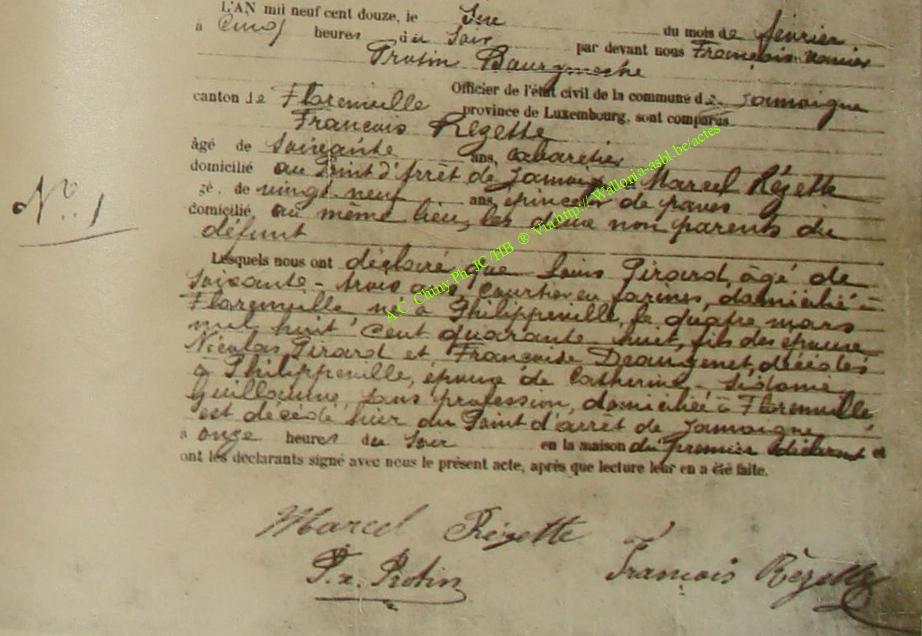 L'AN mil neuf cent douze, le 1er du mois de février
à Cinq heures du Soir par devant nous François Xavier
Protin Bourgmestre
Officier de l'état civil de la commune de Jamoigne
canton de Florenville province de Luxembourg, sont comparus
François Rézette
âgé de Soixante ans, cabaretier
domicilié au Point d'Arrêt de Jamoigne Marcel Rézette
âgé de vingt neuf ans, épinceur de pavés
domicilié au même lieu, les deux non parents du
défunt
Lesquels nous ont déclaré que Louis Pirard, âgé de
Soixante-trois ans, Courtier en farines, domicilié à
Florenville né à Philippeville, le quatre mars
mil huit cent quarante huit, fils des époux
Nicolas Pirard et Françoise décédés
à Philippeville, époux de Catherine
Guillaume, sans profession, domiciliée à Florenville
est décédé hier au Point d'arrêt de Jamoigne
à onze heures du Soir en la maison du premier déclarant et
ont les déclarants signé avec nous le présent acte, après que lecture leur en a été faite.
N° 1
A.C. Chiny Ph. JC/HB ® Via http://Wallonia-asbl.be/actes
Marcel Rézette
F.x. Protin
François Rézette